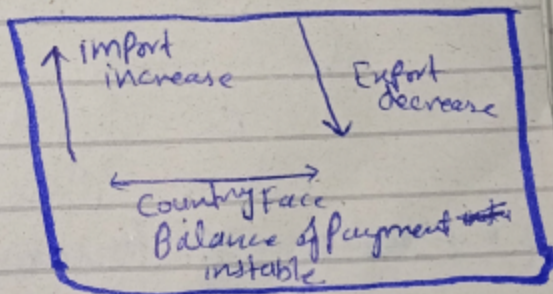 import
increase
Export
decrease
Country Face
Balance of Payment
instable